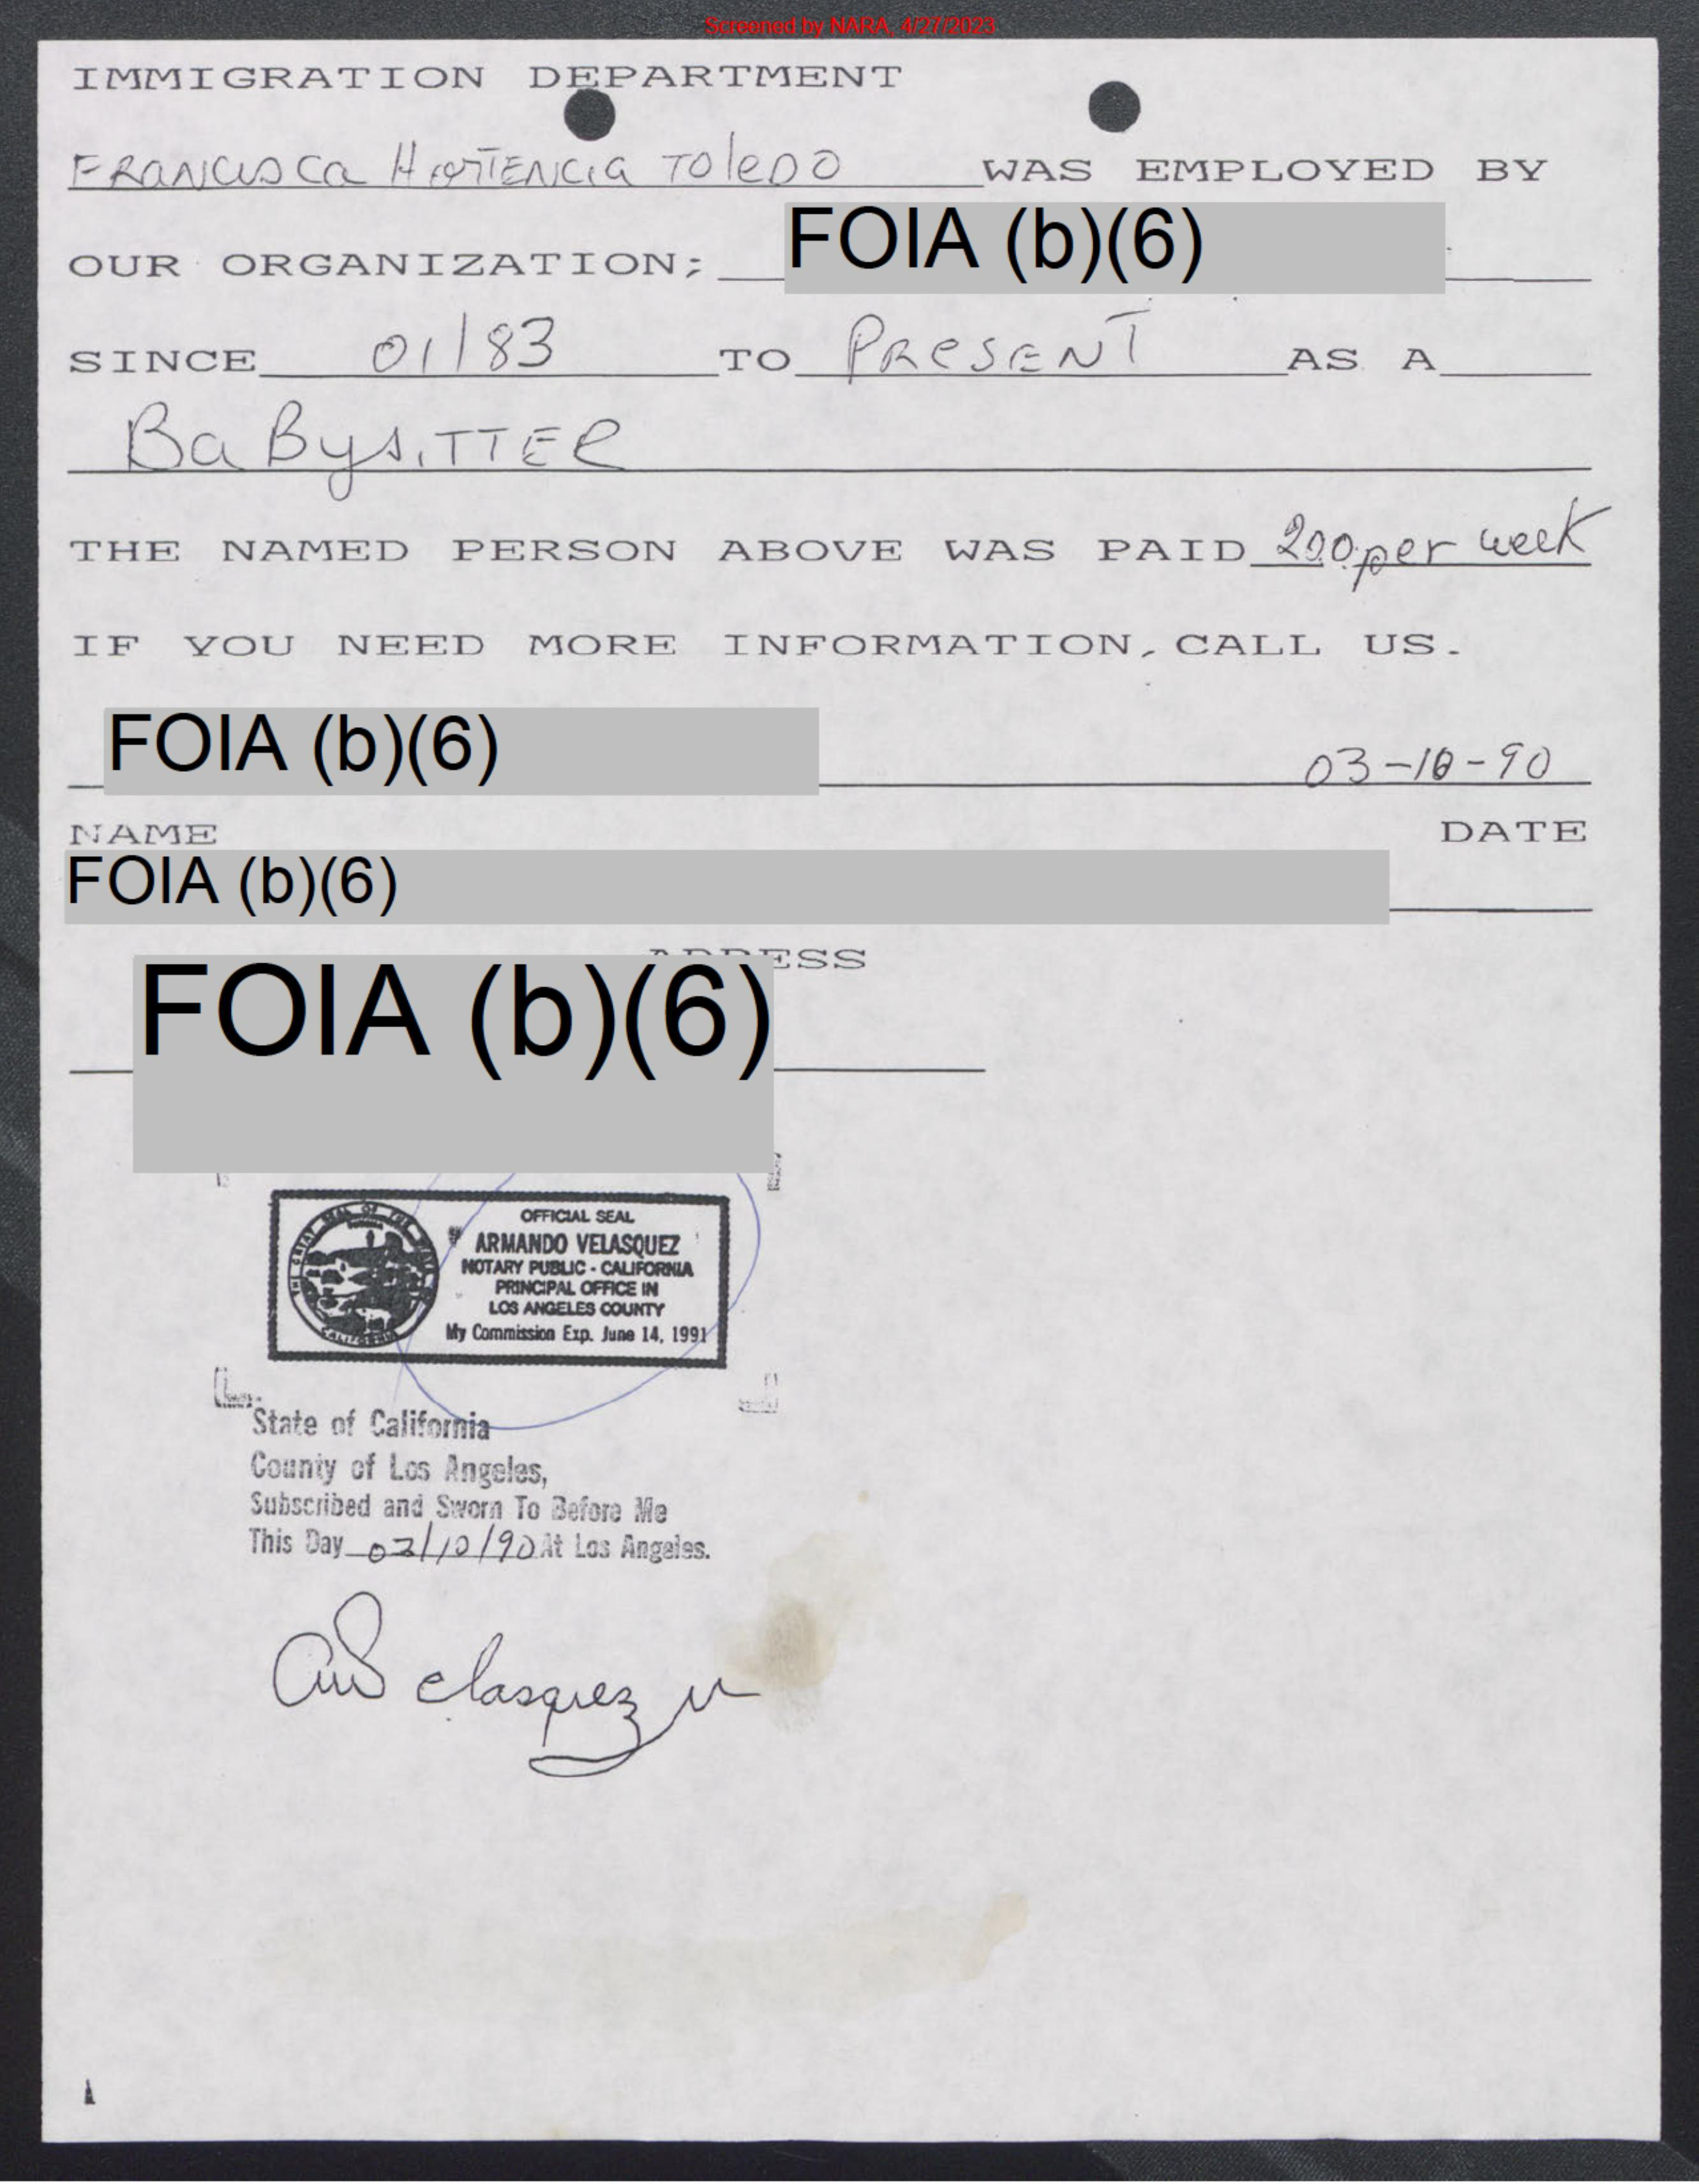 Screened by NARA, 4/27/2023
IMMIGRATION DEPARTMENT
FRANCISCA HORTENCIA TOLEDO WAS EMPLOYED BY
OUR ORGANIZATION; FOIA (b)(6)
SINCE 01/83 TO PRESENT AS A
BaBysiTTER
THE NAMED PERSON ABOVE WAS PAID 200 per week
IF YOU NEED MORE INFORMATION, CALL US.
FOIA (b)(6) 03-10-90
NAME DATE
FOIA (b)(6)
ADDRESS
FOIA (b)(6)
THE GREAT SEAL OF THE STATE
CALIFORNIA
OFFICIAL SEAL
ARMANDO VELASQUEZ
NOTARY PUBLIC - CALIFORNIA
PRINCIPAL OFFICE IN
LOS ANGELES COUNTY
My Commission Exp. June 14, 1991
State of California
County of Los Angeles,
Subscribed and Sworn To Before Me
This Day 03/10/90 At Los Angeles.
Velasquez